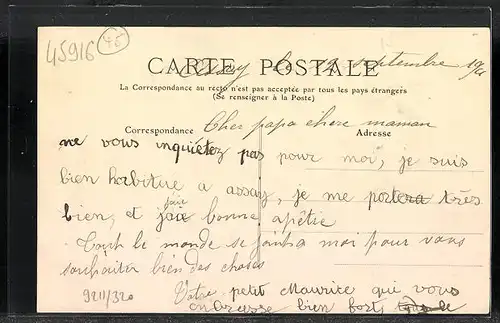 45916
46
CARTE POSTALE
assay le 12 septembre 19
La Correspondance au recto n'est pas acceptée par tous les pays étrangers
(Se renseigner à la Poste)
Correspondance
Adresse
Cher papa chere maman
ne vous inquiétez pas pour moi, je suis
bien habitue a assay, je me porte très
bien, et jaie bonne apétie
Tout le monde se joint a moi pour vous
souhaiter bien des choses
Votre petit Maurice qui vous
enbrasse bien fort
9211/320